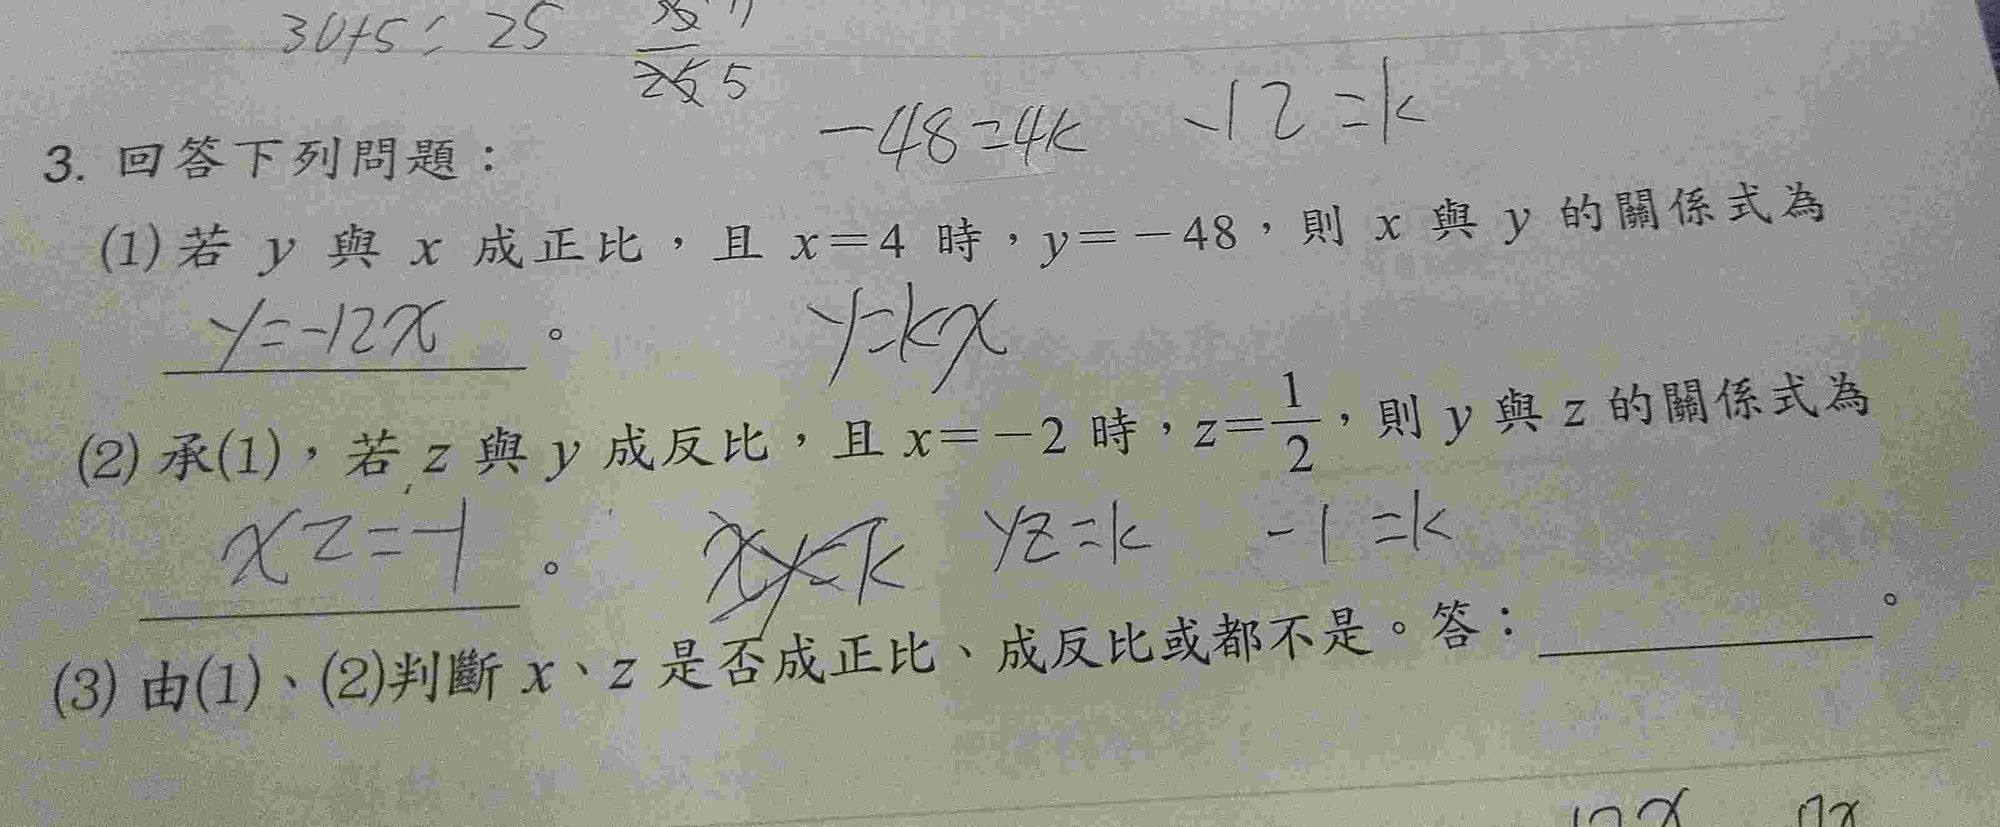 30+5= 25
25 5
-48=4k -12=k
3. 回答下列問題：
(1) 若 y 與 x 成正比，且 x=4 時，y=-48，則 x 與 y 的關係式為
y=-12x 。 y=kx
(2) 承(1)，若 z 與 y 成反比，且 x=-2 時，z=1/2，則 y 與 z 的關係式為
xz=-1 。 xy=k yz=k -1=k
(3) 由(1)、(2)判斷 x、z 是否成正比、成反比或都不是。答： 。
12x